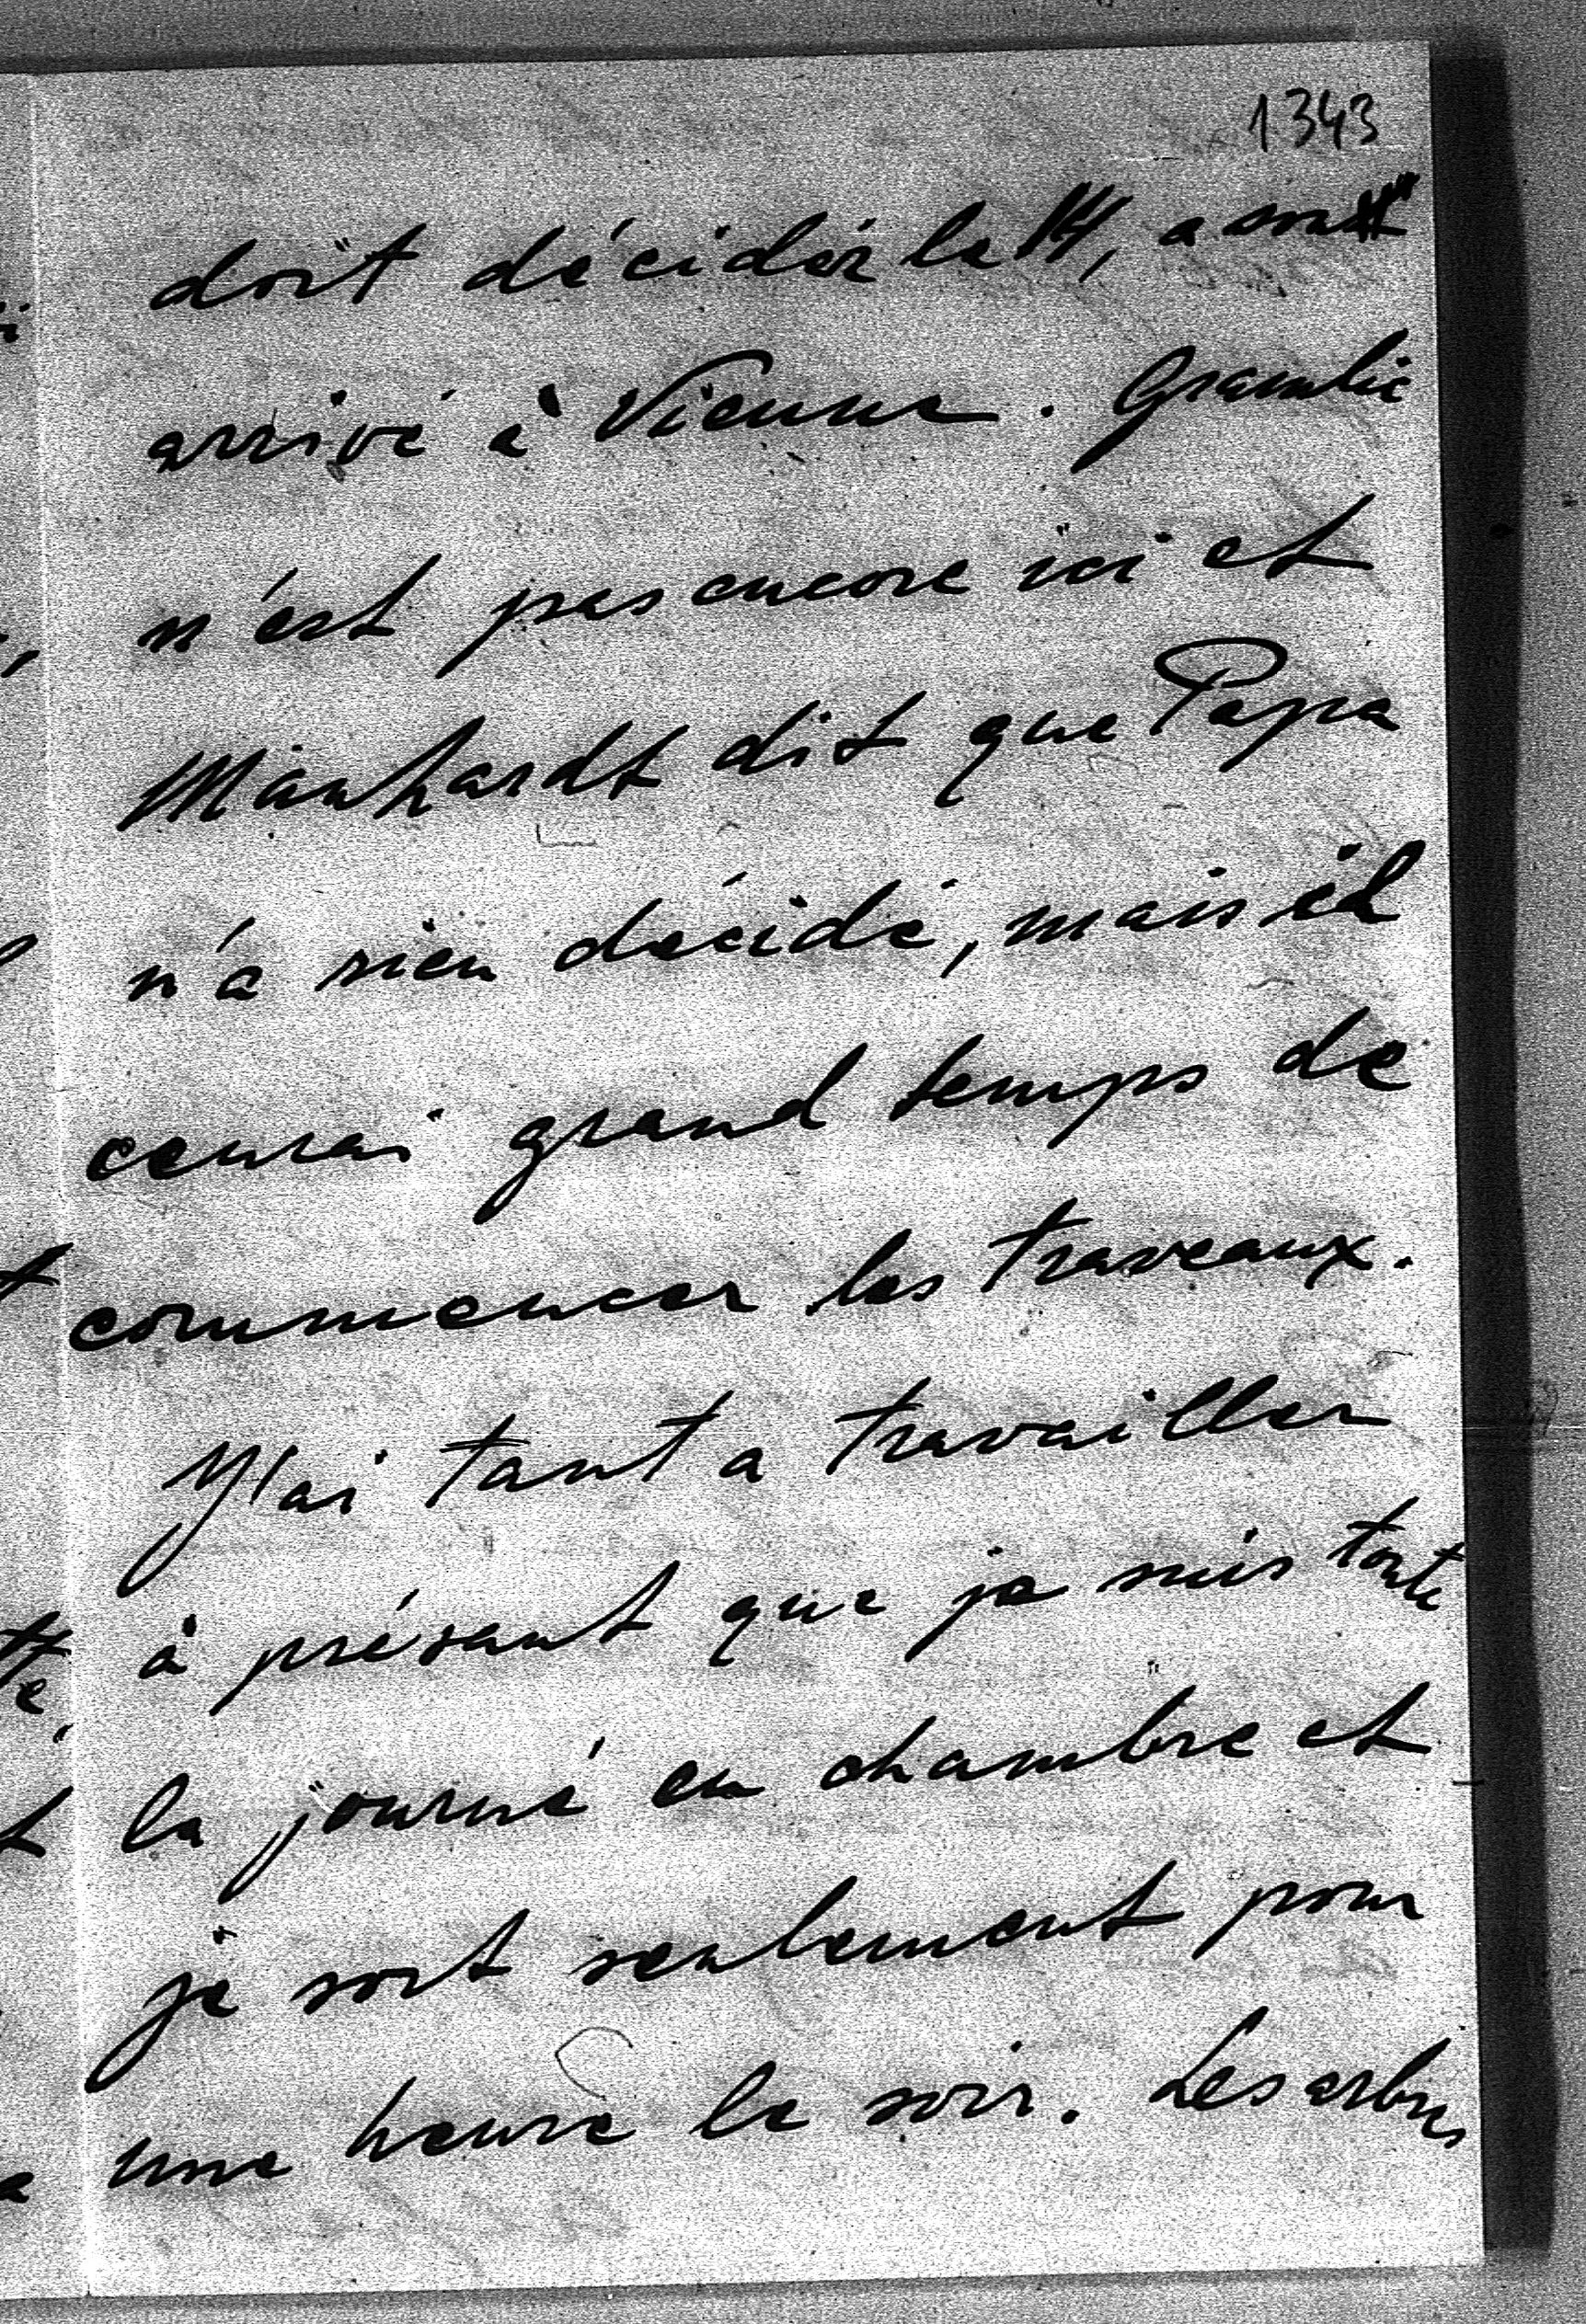 1343
doit décidér le 14, a son
arrivé à Vienne. Grambic
n'est pas encore ici et
Manhardt dit que Papa
n'a rien décidé, mais il
cenrai grand temps de
commencer les traveaux.
J'ai tant a travailler
à présant que je suis toute
la journé en chambre et
je sort seulement pour
une heure le soir. Les arbres